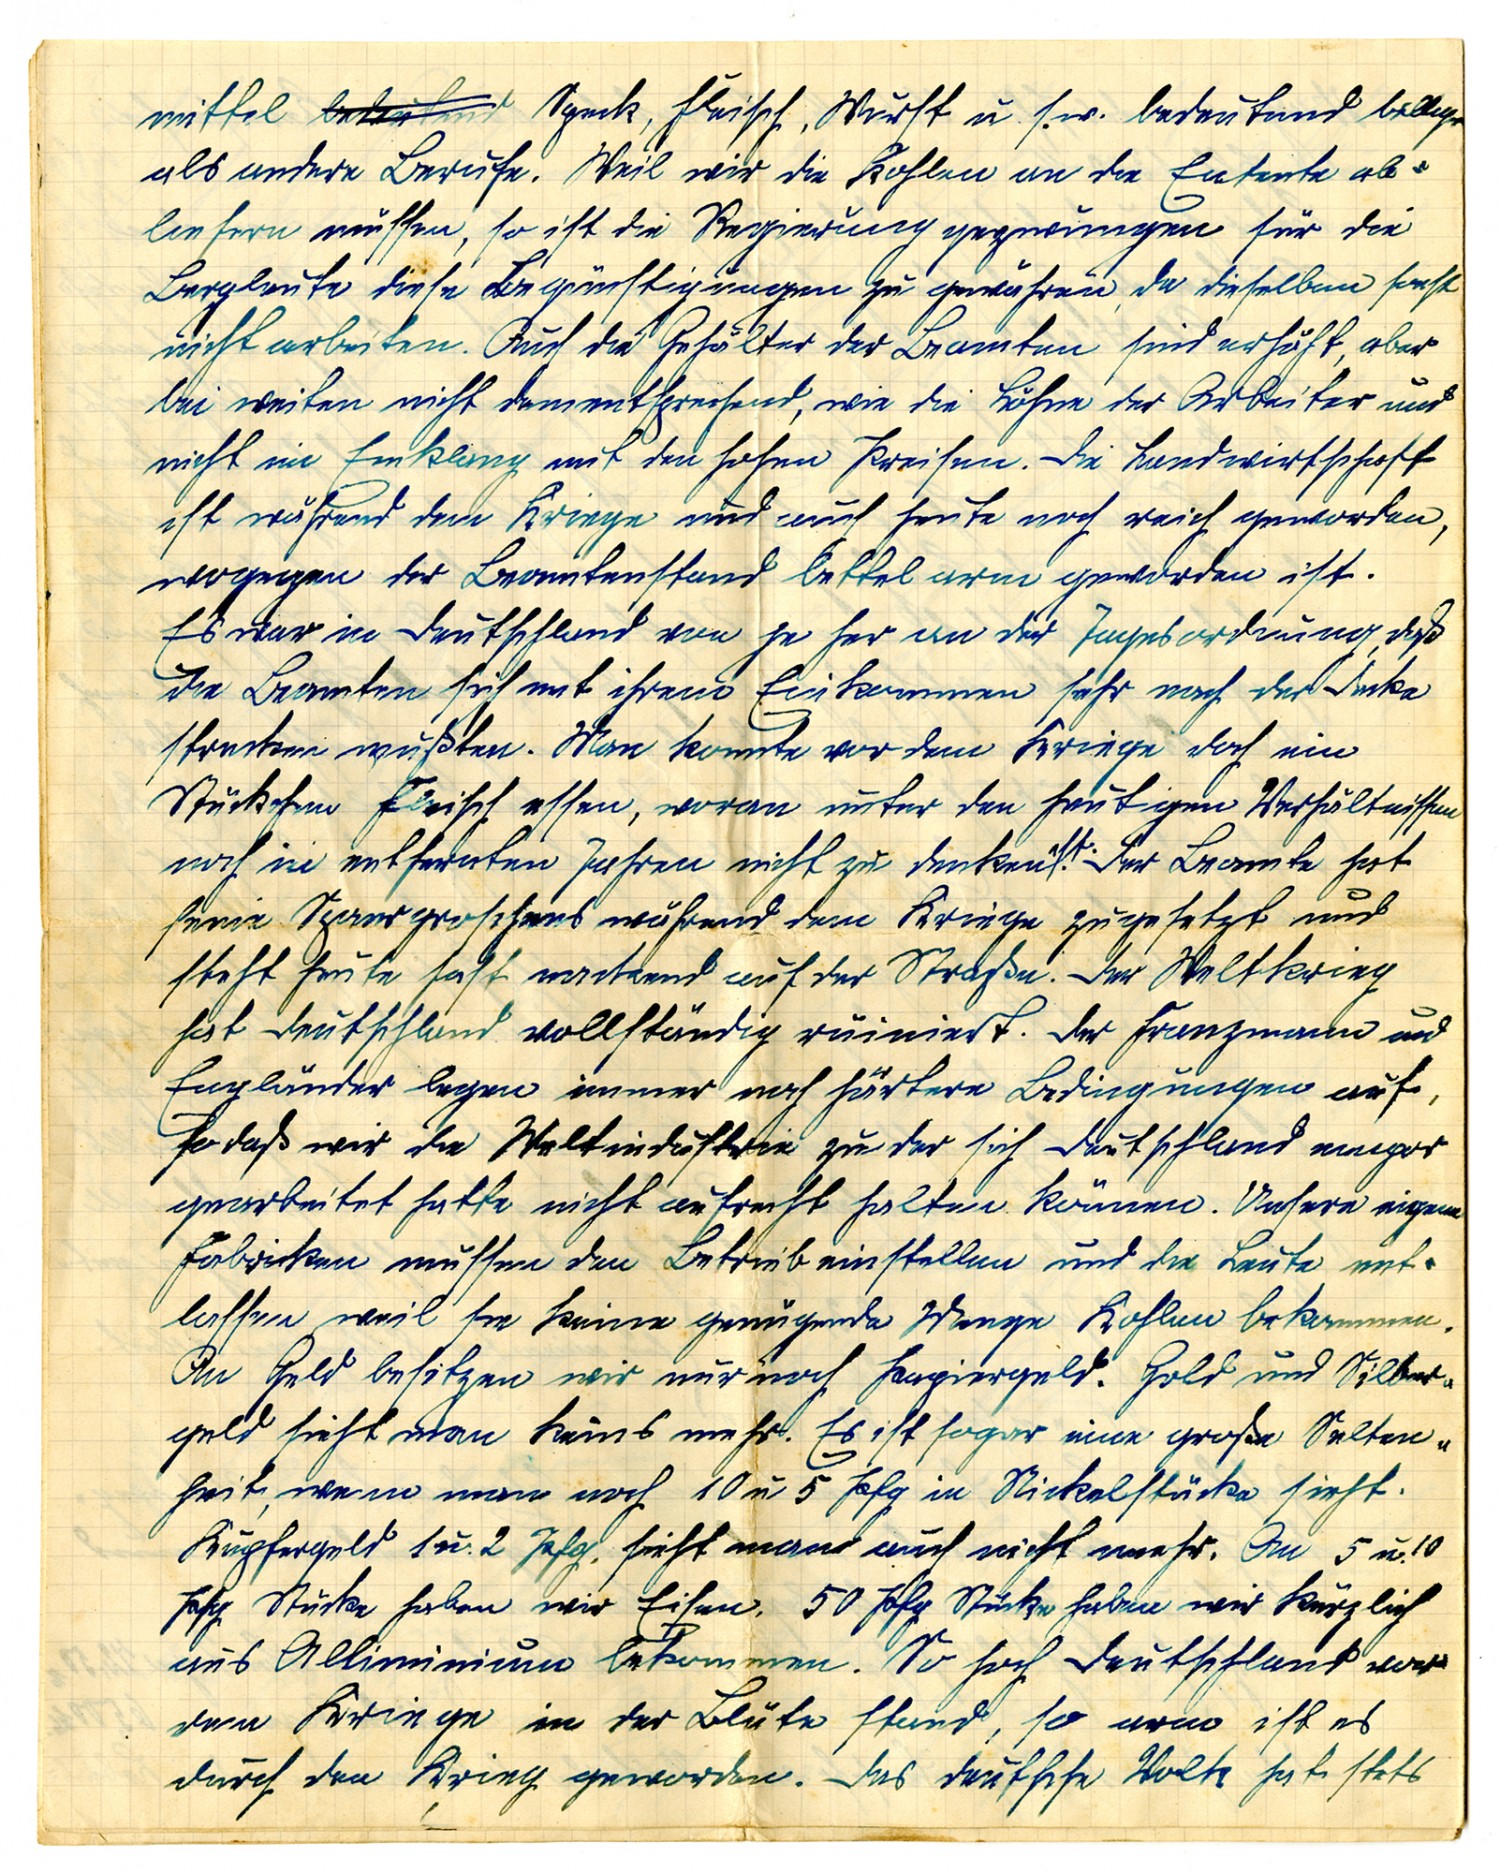 mittel bedeutend Speck, Fleisch, Wurst u. s.w. bedeutend billiger
als andere Berufe. Weil wir die Kohlen an die Entente ab-
liefern müssen, so ist die Regierung gezwungen für die
Bergleute diese Begünstigungen zu gewähren, da dieselben sonst
nicht arbeiten. Auch die Gehälter der Beamten sind erhöht, aber
bei weiten nicht dementsprechend, wie die Löhne der Arbeiter und
nicht im Einklang mit den hohen Preisen. Die Landwirtschaft
ist während dem Kriege und auch heute noch reich geworden,
wogegen der Beamtenstand bettel arm geworden ist.
Es war in Deutschland von je her an der Tagesordnung, daß
die Beamten sich mit ihrem Einkommen sehr nach der Decke
strecken mußten. Man konnte vor dem Kriege doch ein
Stückchen Fleisch essen, woran unter den heutigen Verhältnissen
noch in entfernten Jahren nicht zu denken ist. Der Beamte hat
seine Spargroschens während dem Kriege zugesetzt und
steht heute fast nackend auf der Straße. Der Weltkrieg
hat Deutschland vollständig ruiniert. Der Franzmann und
Engländer legen immer noch härtere Bedingungen auf,
so daß wir die Weltindustrie zu der sich Deutschland empor
gearbeitet hatte nicht aufrecht halten können. Unsere eigene
Fabricken müssen den Betrieb einstellen und die Leute ent-
lassen weil sie keine genügende Menge Kohlen bekommen.
An Geld besitzen wir nur noch Papiergeld. Gold und Silber-
geld sieht man keins mehr. Es ist sogar eine große Selten-
heit, wenn man noch 10 u 5 Pfg in Nickelstücke sieht.
Kupfergeld 1 u. 2 Pfg. sieht man auch nicht mehr. An 5 u. 10
Pfg Stücke haben wir Eisen. 50 Pfg Stücke haben wir kürzlich
aus Alliminium bekommen. So hoch Deutschland vor
dem Kriege in der Blüte stand, so arm ist es
durch den Krieg geworden. Das deutsche Volk hat stets